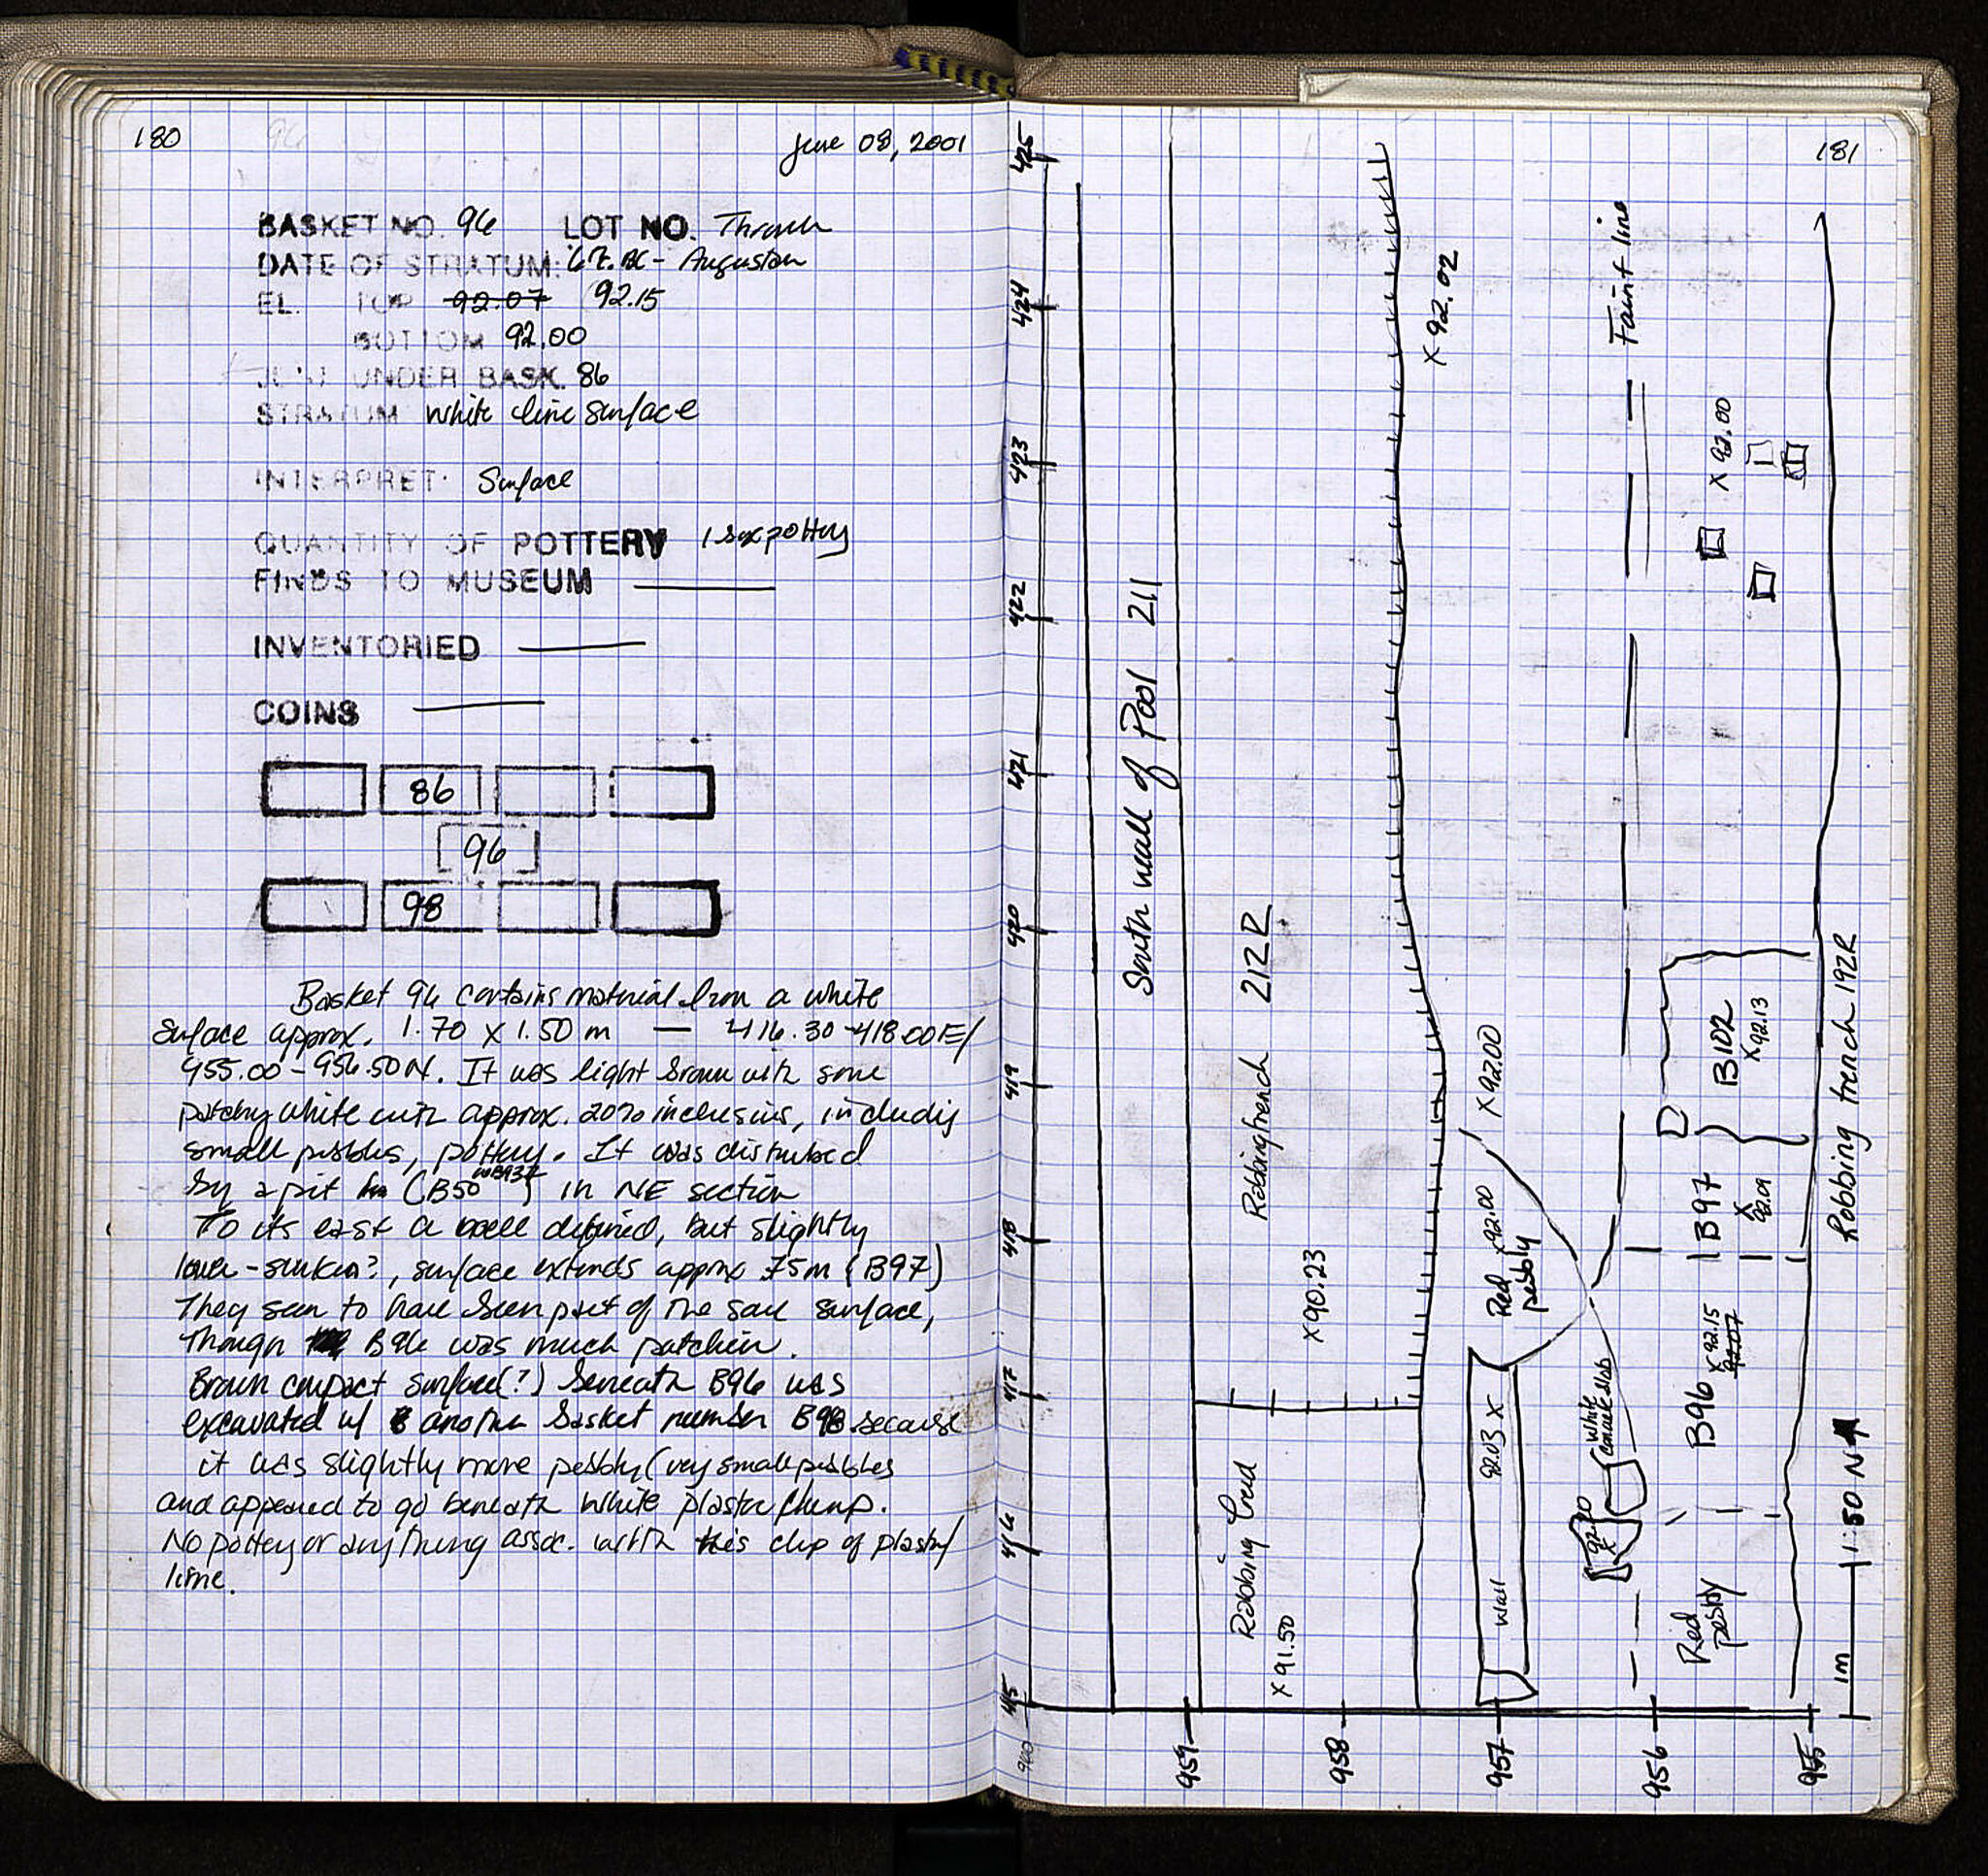 180
June 08, 2001
BASKET NO. 96 LOT NO. Thrown
DATE OF STRATUM: BC - Augustan
EL. TOP 92.07 92.15
BOTTOM 92.00
JUST UNDER BASK. 86
STRATUM white lime surface
INTERPRET: Surface
QUANTITY OF POTTERY 1 box pottery
FINDS TO MUSEUM
INVENTORIED
COINS
86
96
98
Basket 96 contains material from a white
surface approx. 1.70 x 1.50 m — 416.30-418.00E/
955.00-956.50N. It was light brown with some
patchy white with approx. 20% inclusions, including
small pebbles, pottery. It was disturbed
by a pit (B50) in NE section
To its east a well defined, but slightly
lower-sunken?, surface extends approx .75m (B97)
They seem to have been part of the same surface,
though B96 was much patchier.
Brown compact surface(?) beneath B96 was
excavated w/ another basket number B98 because
it was slightly more pebbly (very small pebbles
and appeared to go beneath white plaster clump.
No pottery or anything assoc. with this clump of plaster/
lime.
181
425
424
423
422
421
420
419
418
417
416
415
960
959
958
957
956
955
South wall of Pool 211
Robbing trench 212R
x 90.23
Robbing Cred
x 91.50
x 92.02
x 92.00
Red x 92.00
pebbly
wall 92.03 x
Faint line
x 92.00
B102
x 92.13
B97
x
92.09
B96 x 92.15
92.07
white
92.10
x
Red
pebbly
Robbing trench 192R
1m
1:50 N